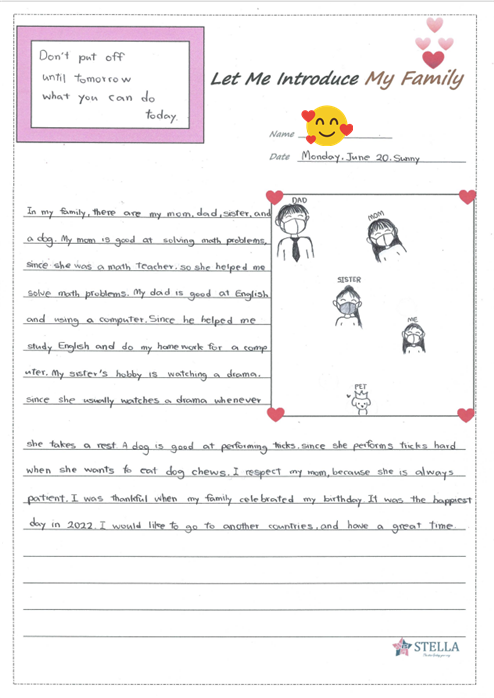 Don't put off
until tomorrow
what you can do
today.
Let Me Introduce My Family
Name
Date Monday. June 20. Sunny
In my family, there are my mom, dad, sister, and
a dog. My mom is good at solving math problems,
since she was a math teacher. so she helped me
solve math problems. My dad is good at English
and using a computer. Since he helped me
study English and do my homework for a comp
uter. My sister's hobby is watching a drama.
since she usually watches a drama whenever
DAD
MOM
SISTER
ME
PET
she takes a rest. A dog is good at performing tricks. since she performs tricks hard
when she wants to eat dog chews. I respect my mom, because she is always
patient. I was thankful when my family celebrated my birthday. It was the happiest
day in 2022. I would like to go to another countries. and have a great time.
STELLA